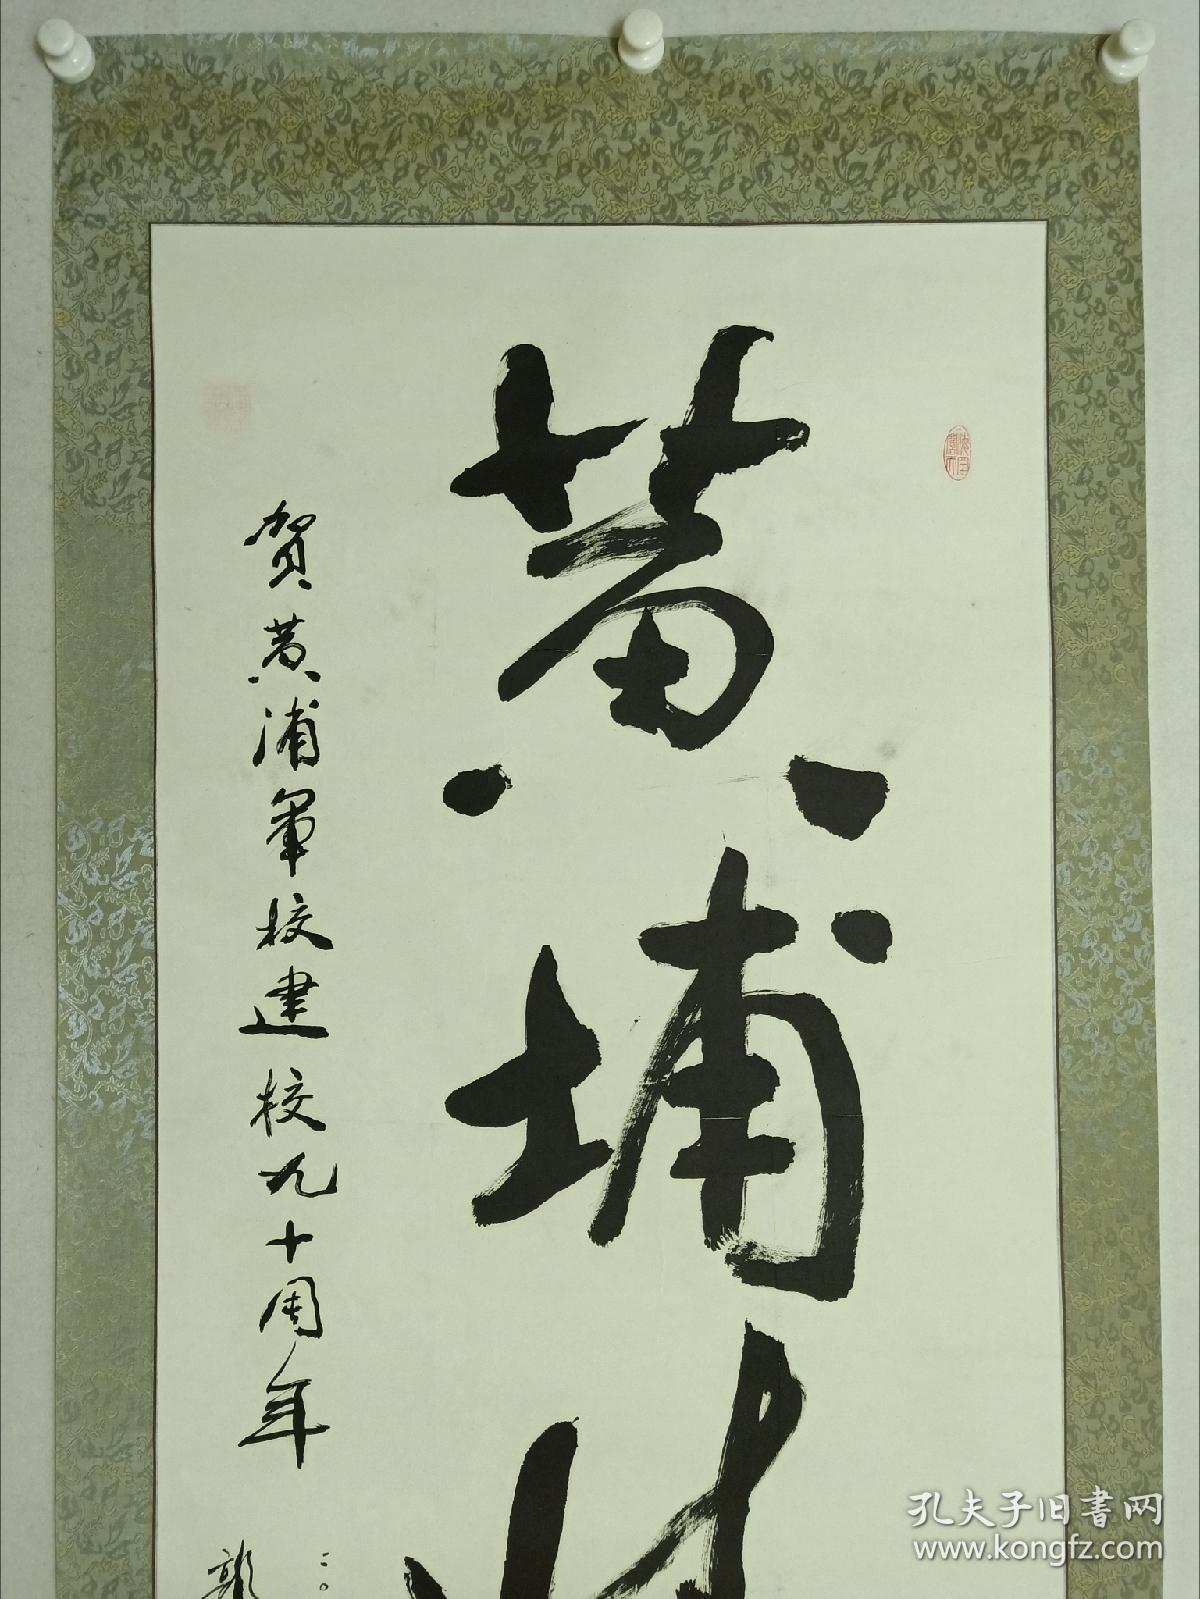 黄埔
贺黄浦军校建校九十周年
二〇
郭
孔夫子旧書网
www.kongfz.com